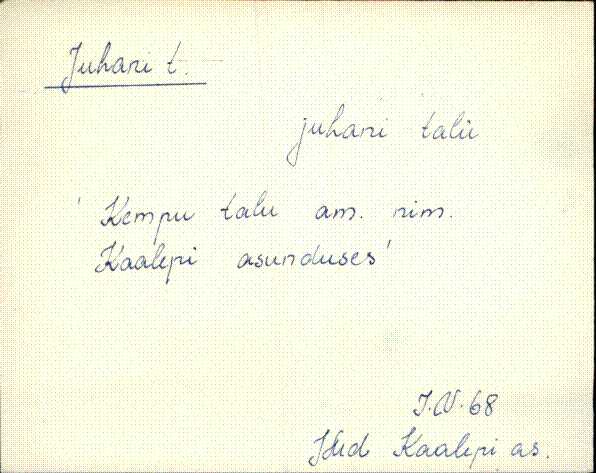 Juhani t.
juhani talu
' Kempu talu am. nim.
Kaalepi asunduses'
J.V. 68
JMd Kaalepi as.